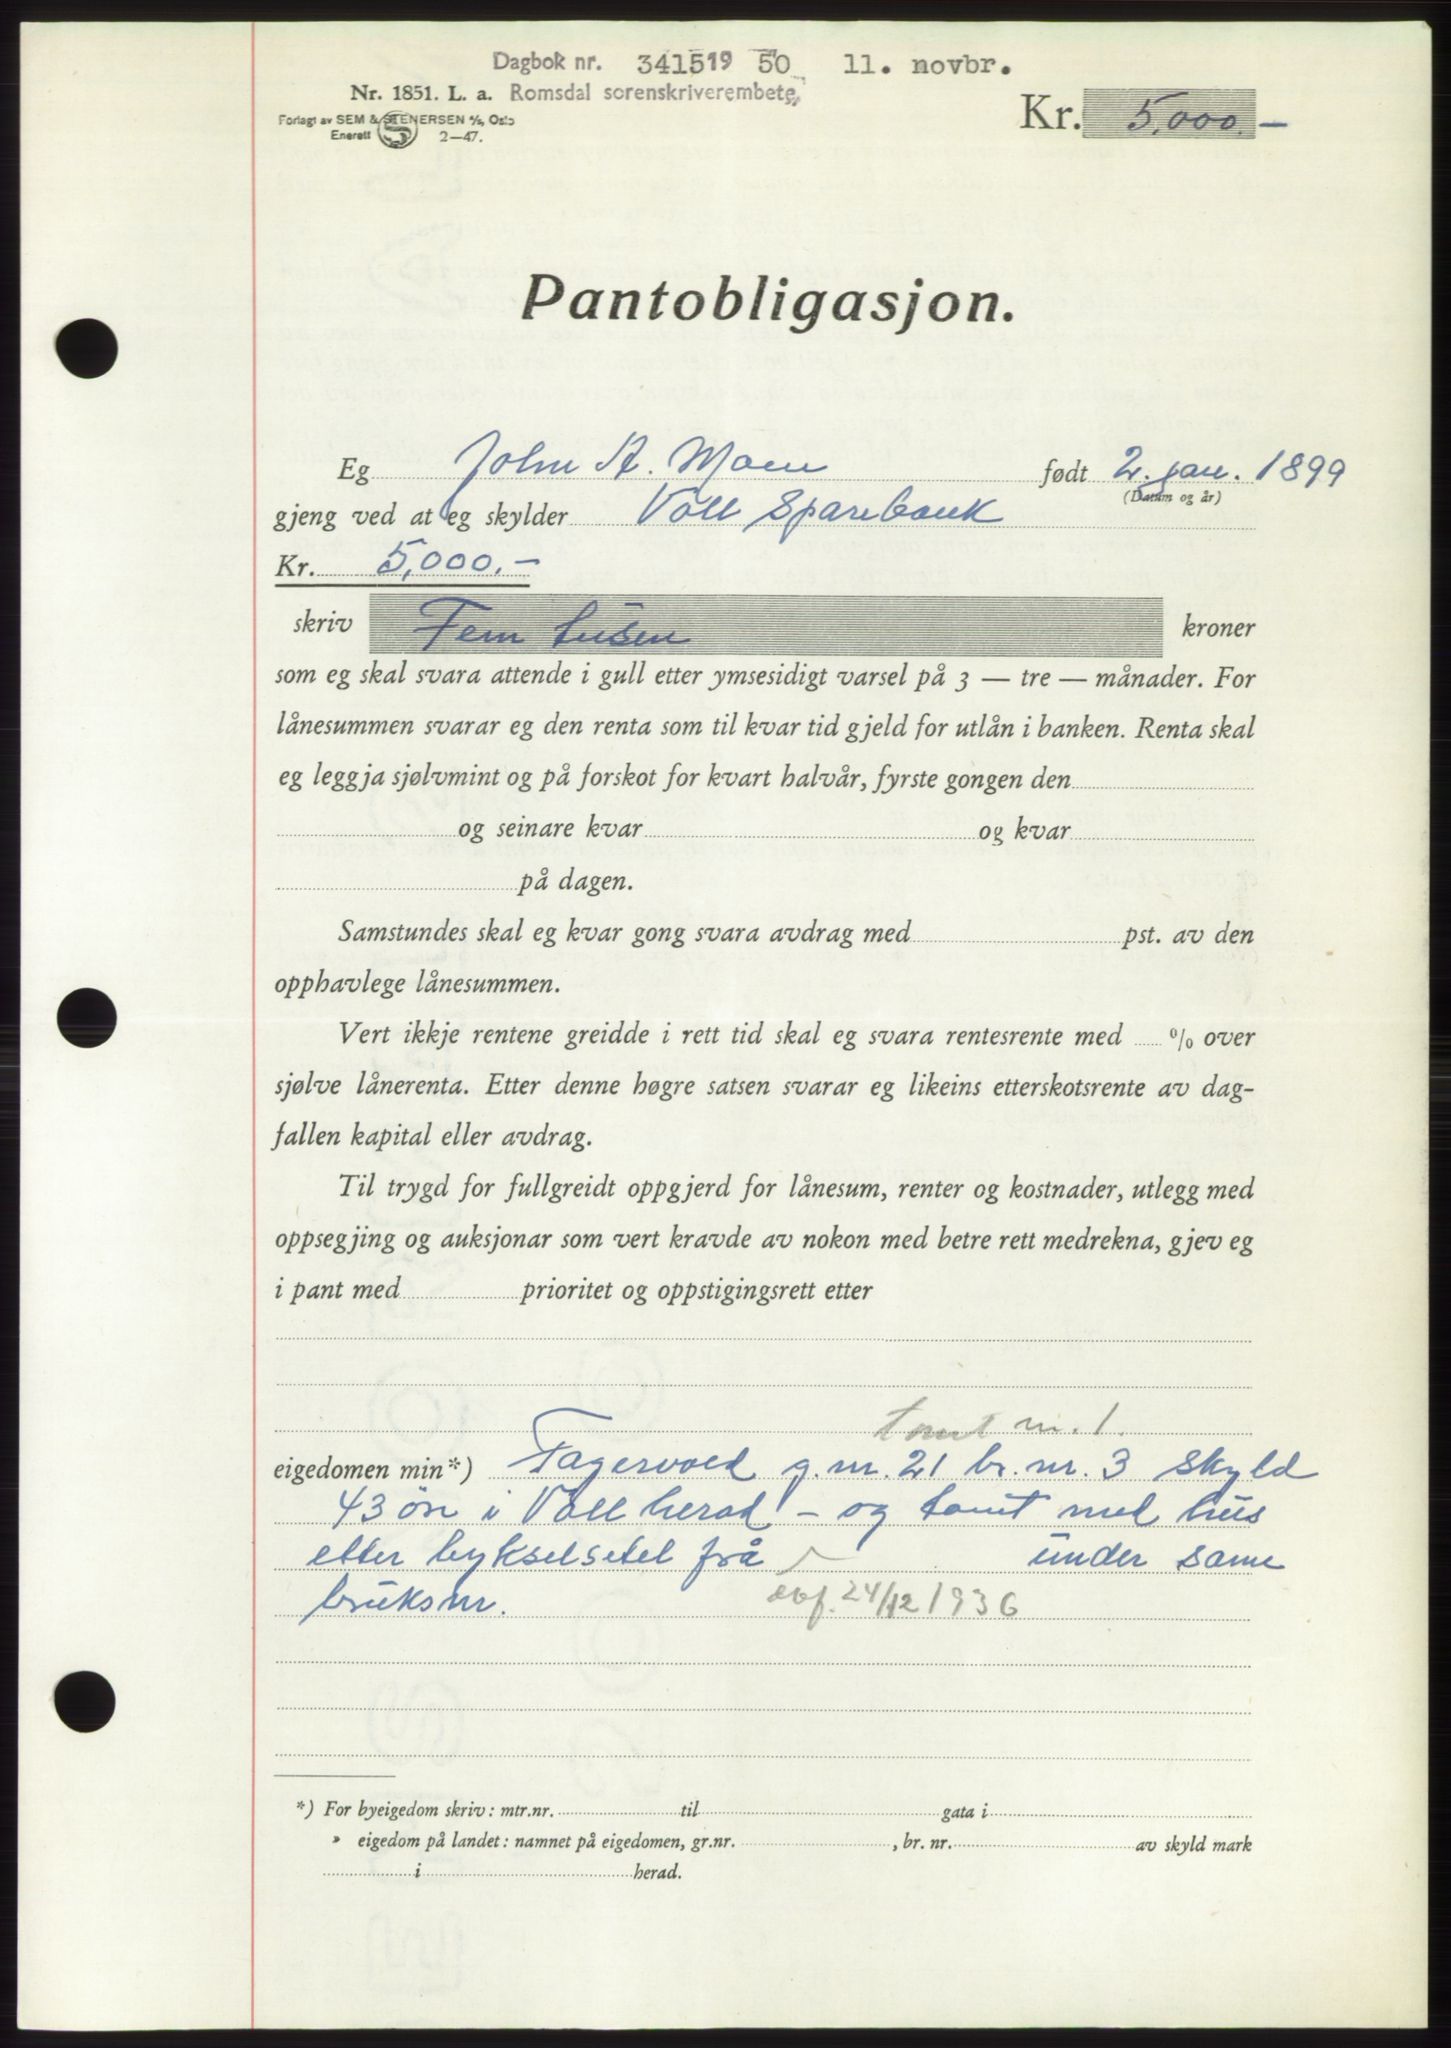 Dagbok nr. 3415 19 50 11. novbr.
Nr. 1851. L. a. Romsdal sorenskriverembete
Forlagt av SEM & STENERSEN A/S, Oslo
Enerett S 2—47.
Kr. 5,000.—
Pantobligasjon.
Eg John A. Moen født 2. jan. 1899
(Datum og år)
gjeng ved at eg skylder Voll Sparebank
Kr. 5,000.—
skriv Fem tusen kroner
som eg skal svara attende i gull etter ymsesidigt varsel på 3 — tre — månader. For
lånesummen svarar eg den renta som til kvar tid gjeld for utlån i banken. Renta skal
eg leggja sjølvmint og på forskot for kvart halvår, fyrste gongen den
og seinare kvar og kvar
på dagen.
Samstundes skal eg kvar gong svara avdrag med pst. av den
opphavlege lånesummen.
Vert ikkje rentene greidde i rett tid skal eg svara rentesrente med % over
sjølve lånerenta. Etter denne høgre satsen svarar eg likeins etterskotsrente av dag-
fallen kapital eller avdrag.
Til trygd for fullgreidt oppgjerd for lånesum, renter og kostnader, utlegg med
oppsegjing og auksjonar som vert kravde av nokon med betre rett medrekna, gjev eg
i pant med prioritet og oppstigingsrett etter
tomt nr. 1.
eigedomen min*) Fagervold g.nr. 21 br.nr. 3 skyld
43 øre i Voll herad – og tomt med hus
etter bykselsetel frå under same
bruksnr. 24/12 1936
*) For byeigedom skriv: mtr.nr. til gata i
» eigedom på landet: namnet på eigedomen, gr.nr. , br. nr. av skyld mark
i herad.